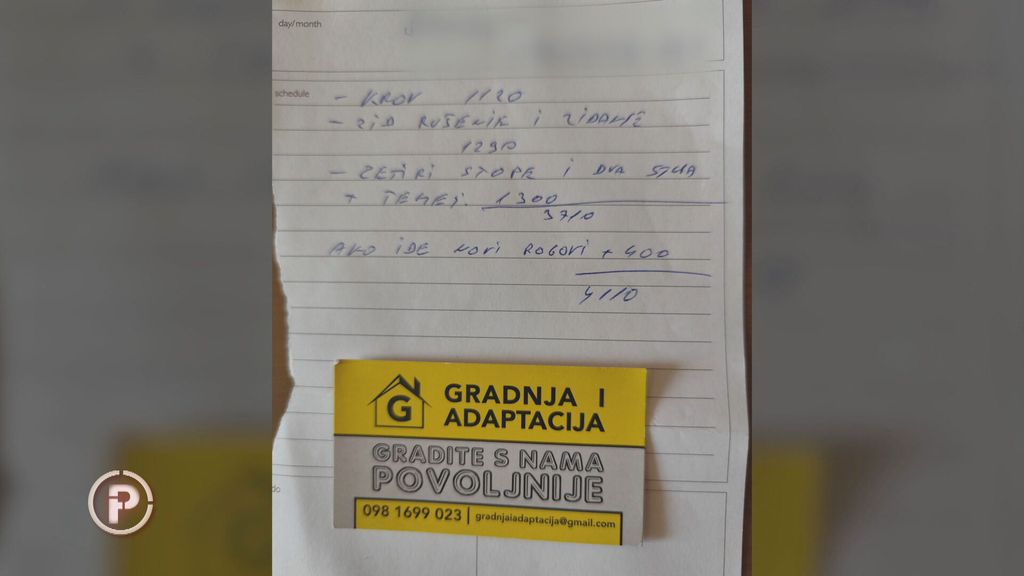 day/month
schedule
- KROV 1120
- ZID RUŠENJE I ZIDANJE
1290
- ČETIRI STOPE I DVA STUPA
+ TEMEJ. 1300
3710
AKO IDE NOVI ROGOVI + 400
4110
G
GRADNJA I
ADAPTACIJA
GRADITE S NAMA
POVOLJNIJE
098 1699 023 | gradnjaiadaptacija@gmail.com
do
P